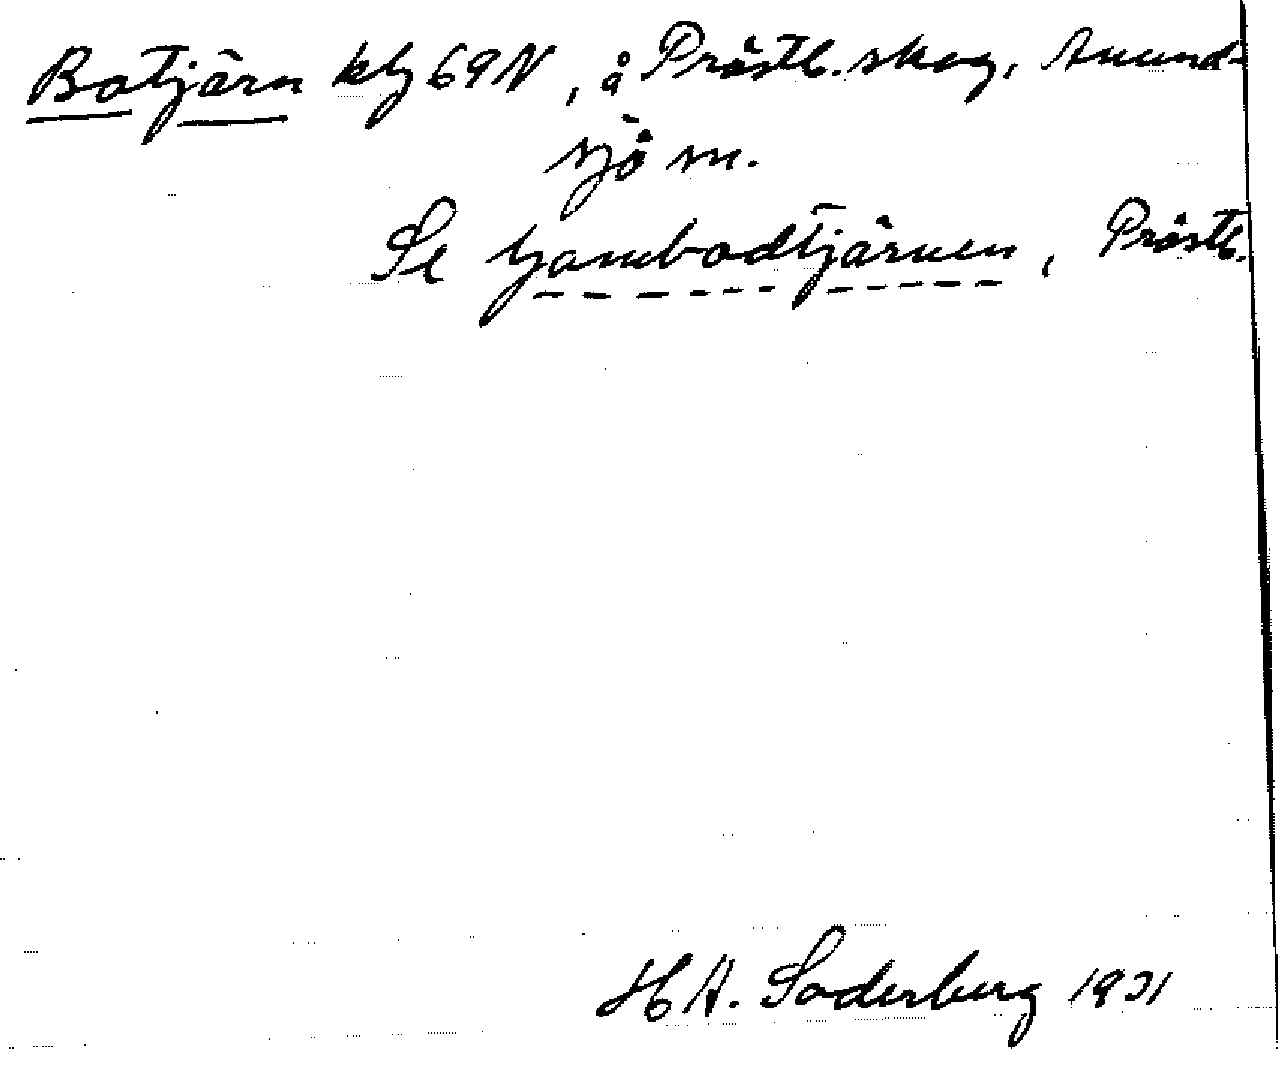 Botjärn kbl 69 N, å Prästb. skog, Anund-
sjö sn.
Se Gambodtjärnen, Prästb.
H A. Söderberg 1931